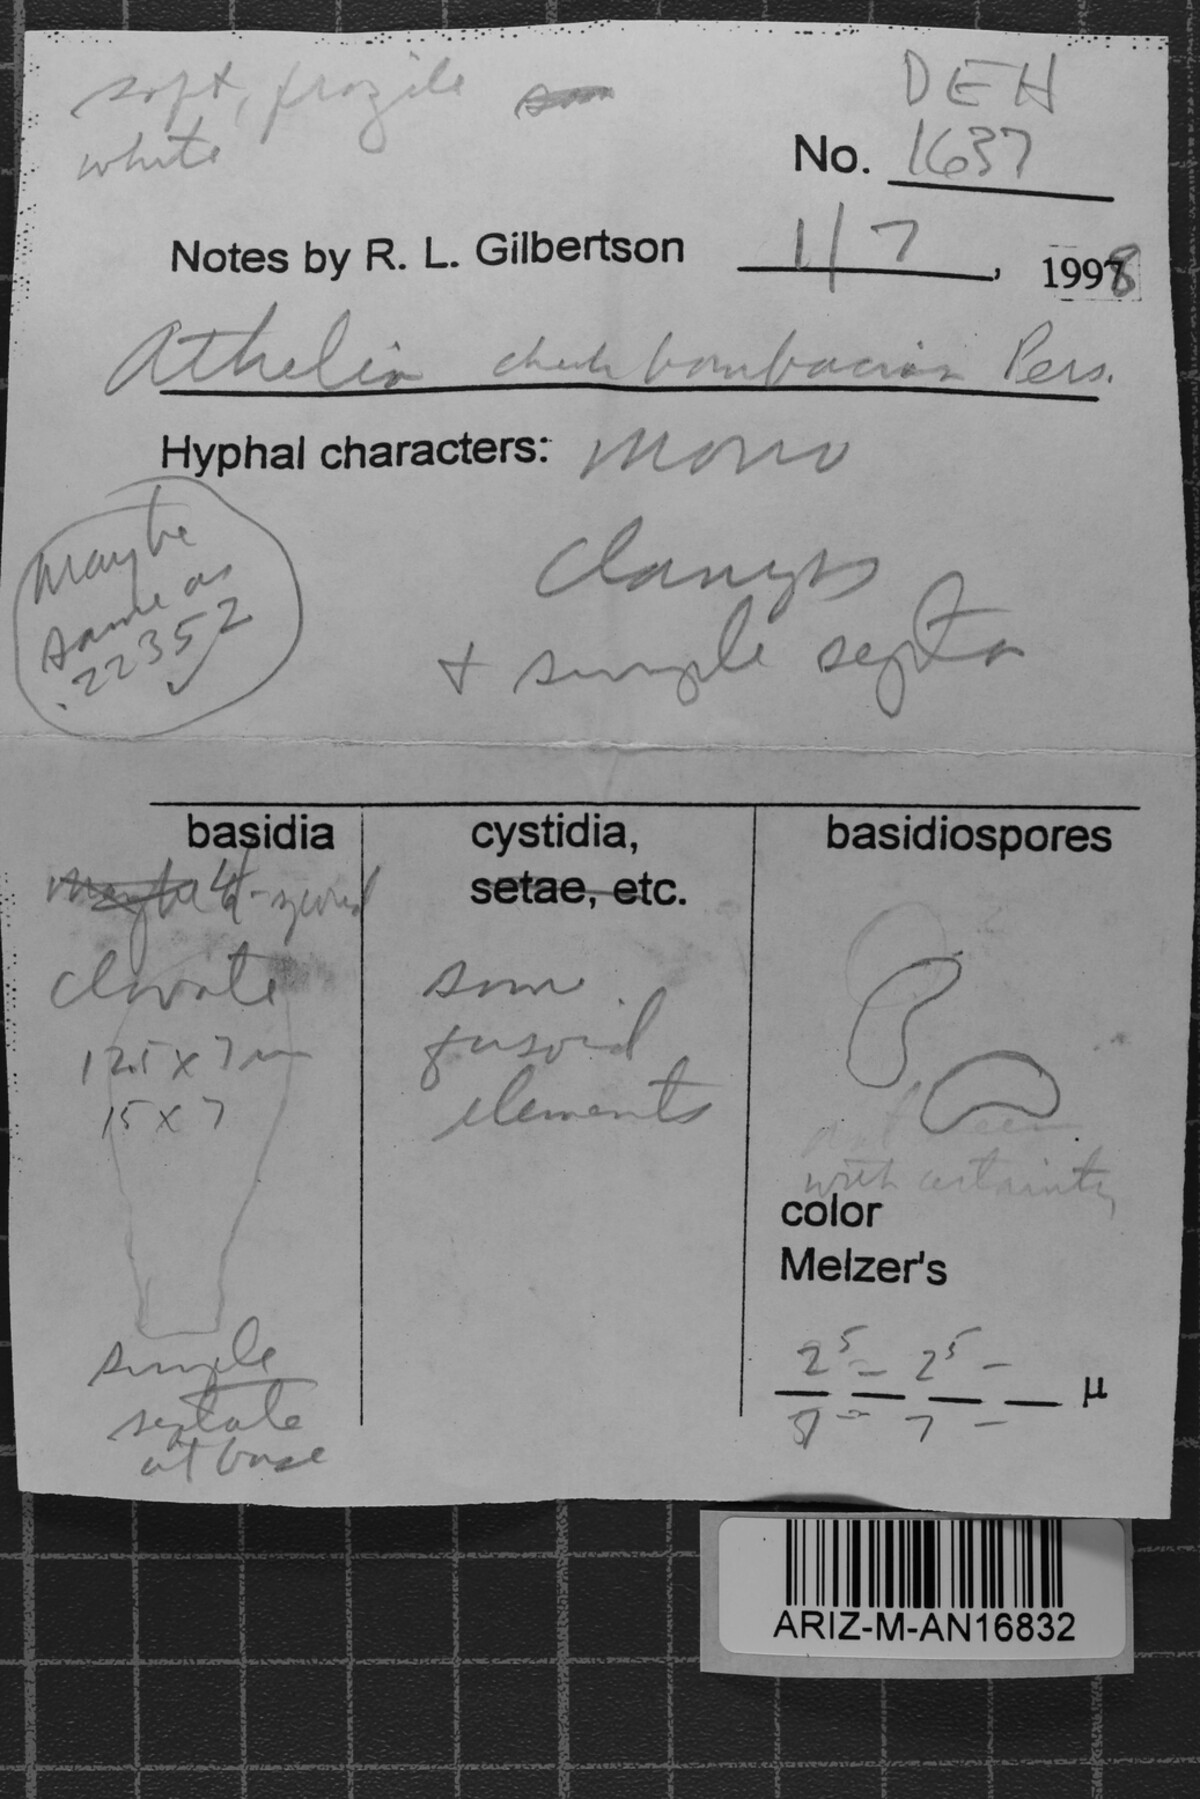 soft, fragile
white
DEH
No. 1637
Notes by R. L. Gilbertson 1/7, 1998
Athelia check bombacina Pers.
Hyphal characters: mono
clamps
+ simple septa
maybe
same as
22352
basidia
4-spored
clavate
12.5 x 7 µm
15 x 7
simple
septate
at base
cystidia,
setae, etc.
some
fusoid
elements
basidiospores
seen
with certainty
color
Melzer's
2 5 – 2 5 –
µ
7 –
ARIZ-M-AN16832